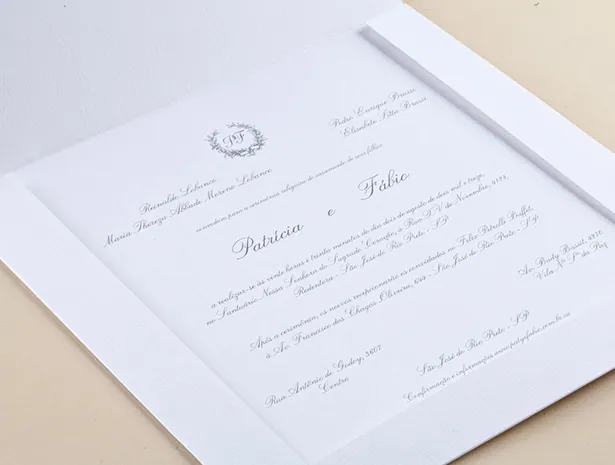 PF
Reinaldo Lebanco
Maria Thereza Abbade Moreno Lebanco
Pedro Enrique Brassi
Elisabete Brassi
convidam para a cerimônia religiosa de casamento de seus filhos
Patrícia e Fábio
a realizar-se às vinte horas e trinta minutos do dia dois de agosto de dois mil e treze,
no Santuário Nossa Senhora do Sagrado Coração, à Rua XV de Novembro, 4175,
Redentora - São José do Rio Preto - SP
Após a cerimônia, os noivos recepcionarão os convidados no Félix Petrolli Buffet,
à Av. Francisco das Chagas Oliveira, - São José do Rio Preto - SP
Rua Antônio de Godoy, 3607
Centro
Av. Bady Bassitt,
Vila
São José do Rio Preto - SP
Confirmação e informações